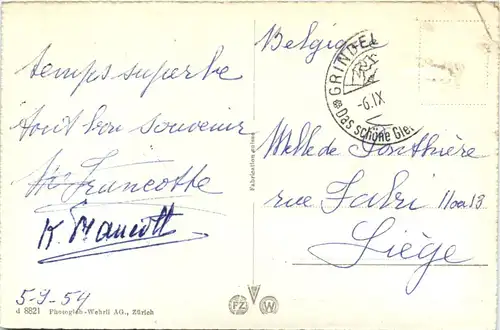 temps superbe
Tout bon souvenir
Francotte
K. Francott
5-9-54
d 8821 Photoglob-Wehrli AG., Zürich
Fabrication suisse
FZ W
Belgique
GRINDEL
-6.IX
Das schöne Glet
Melle de Ponthière
rue Fabri 11 ou 13
Liège